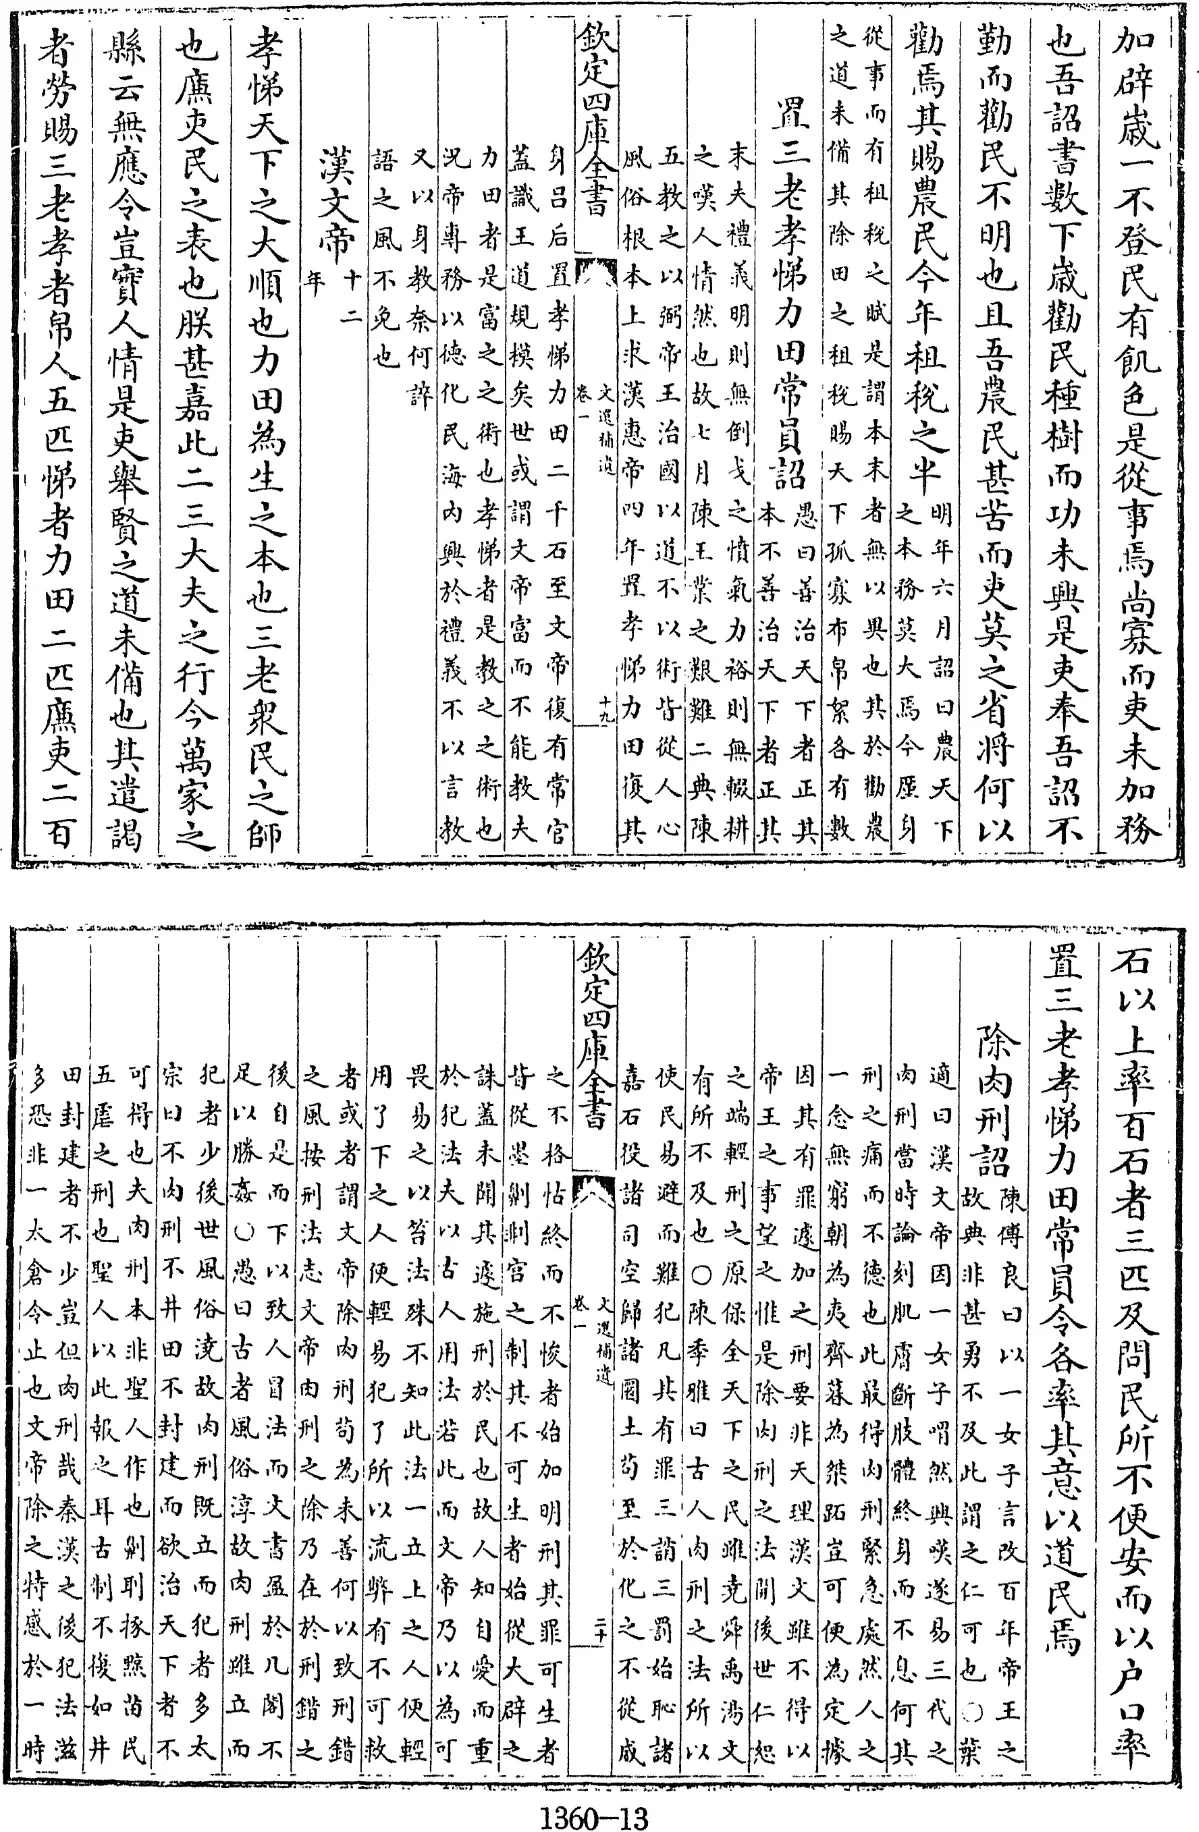 加辟歲一不登民有飢色是從事焉尚寡而吏未加務
也吾詔書數下歲勸民種樹而功未興是吏奉吾詔不
勤而勸民不明也且吾農民甚苦而吏莫之省將何以
勸焉其賜農民今年租稅之半明年六月詔曰農天下
之本務莫大焉今廑身
從事而有租稅之賦是謂本末者無以異也其於勸農
之道未備其除田之租稅賜天下孤寡布帛絮各有數
置三老孝悌力田常員詔愚曰善治天下者正其
本不善治天下者正其
末夫禮義明則無倒戈之憤氣力裕則無輟耕
之嘆人情然也故七月陳王業之艱難二典陳
五教之以弼帝王治國以道不以術皆從人心
風俗根本上求漢惠帝四年置孝悌力田復其
欽定四庫全書
文選補遺
卷一
十九
身吕后置孝悌力田二千石至文帝復有常官
蓋識王道規模矣世或謂文帝富而不能教夫
力田者是富之之術也孝悌者是教之之術也
況帝專務以德化民海內興於禮義不以言教
又以身教奈何誶
語之風不免也
漢文帝十二
年
孝悌天下之大順也力田為生之本也三老衆民之師
也廉吏民之表也朕甚嘉此二三大夫之行今萬家之
縣云無應令豈實人情是吏舉賢之道未備也其遣謁
者勞賜三老孝者帛人五匹悌者力田二匹廉吏二百
石以上率百石者三匹及問民所不便安而以户口率
置三老孝悌力田常員令各率其意以道民焉
除肉刑詔陳傅良曰以一女子言改百年帝王之
故典非甚勇不及此謂之仁可也○葉
適曰漢文帝因一女子喟然興嘆遂易三代之
肉刑當時論刻肌膚斷肢體終身而不息何其
刑之痛而不德也此最得肉刑緊急處然人之
一念無窮朝為夷齊暮為桀跖豈可便為定據
因其有罪遽加之刑要非天理漢文雖不得以
帝王之事望之惟是除肉刑之法開後世仁恕
之端輕刑之原保全天下之民雖堯舜禹湯文
有所不及也○陳季雅曰古人肉刑之法所以
使民易避而難犯凡其有罪三誚三罰始恥諸
嘉石役諸司空歸諸圜土苟至於化之不從威
欽定四庫全書
文選補遺
卷一
二十
之不格怙終而不悛者始加明刑其罪可生者
皆從墨劓剕宫之制其不可生者始從大辟之
誅蓋未聞其遽施刑於民也故人知自愛而重
於犯法夫以古人用法若此而文帝乃以為可
畏易之以笞法殊不知此法一立上之人便輕
用了下之人便輕易犯了所以流弊有不可救
者或者謂文帝除肉刑苟為未善何以致刑錯
之風按刑法志文帝肉刑之除乃在於刑錯之
後自是而下以致人冒法而文書盈於几閣不
足以勝姦○愚曰古者風俗淳故肉刑雖立而
犯者少後世風俗澆故肉刑既立而犯者多太
宗曰不肉刑不井田不封建而欲治天下者不
可得也夫肉刑本非聖人作也劓刵椓黥苗民
五虐之刑也聖人以此報之耳古制不復如井
田封建者不少豈但肉刑哉秦漢之後犯法滋
多恐非一太倉令止也文帝除之特感於一時
1360-13